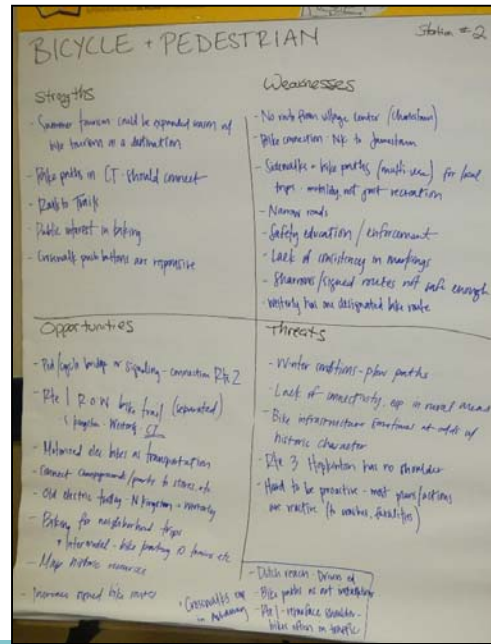 BICYCLE + PEDESTRIAN
Station #2
Stregths
- Summer tourism could be expanded
bike tourism as a destination
- Bike paths in CT - should connect
- Rails to Trails
- Public interest in biking
- Crosswalk push buttons are responsive
Weaknesses
- No route from village center
- Bike connection - NK to Jamestown
- Sidewalks + bike paths (multi-use) for local
trips - mobility, not just recreation
- Narrow roads
- Safety education / enforcement
- Lack of consistency in markings
- Sharrows/signed routes not safe enough
- Westerly has one designated bike route
Opportunities
- Ped/cycle bridge or signaling - connection Rte 2
- Rte 1 ROW bike trail (separated)
Kingston - Westerly - CT
- Motorized elec bikes as transportation
- Connect campgrounds/parks to stores, etc
- Old electric - N Kingston - Westerly
- Biking for neighborhood trips
Intermodal - bike parking @ trains etc
- Map historic resources
- Increase signed bike routes
Crosswalks
in
Threats
- Winter conditions - plow paths
- Lack of connectivity, esp in rural areas
- Bike infrastructure at odds w/
historic character
- Rte 3 Hopkinton has no shoulder
- Hard to be proactive - most plans/actions
are reactive (to crashes, fatalities)
- Dutch reach - Driver ed
- Bike paths as not
- Rte 1 - shoulder
bikes often in traffic